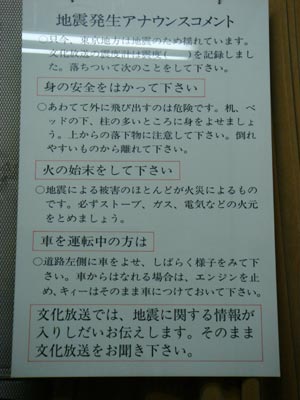 地震発生アナウンスコメント
○只今、東京地方は地震のため揺れています。
文化放送の震度計は震度( )を記録しまし
た。落ちついて次のことをして下さい。
身の安全をはかって下さい
○あわてて外に飛び出すのは危険です。机、ベ
ッドの下、柱の多いところに身をよせましょ
う。上からの落下物に注意して下さい。倒れ
やすいものから離れて下さい。
火の始末をして下さい
○地震による被害のほとんどが火災によるもの
です。必ずストーブ、ガス、電気などの火元
をとめましょう。
車を運転中の方は
○道路左側に車をよせ、しばらく様子をみて下
さい。車からはなれる場合は、エンジンを止
め、キィーはそのまま車につけておいて下さい。
文化放送では、地震に関する情報が
入りしだいお伝えします。そのまま
文化放送をお聞き下さい。